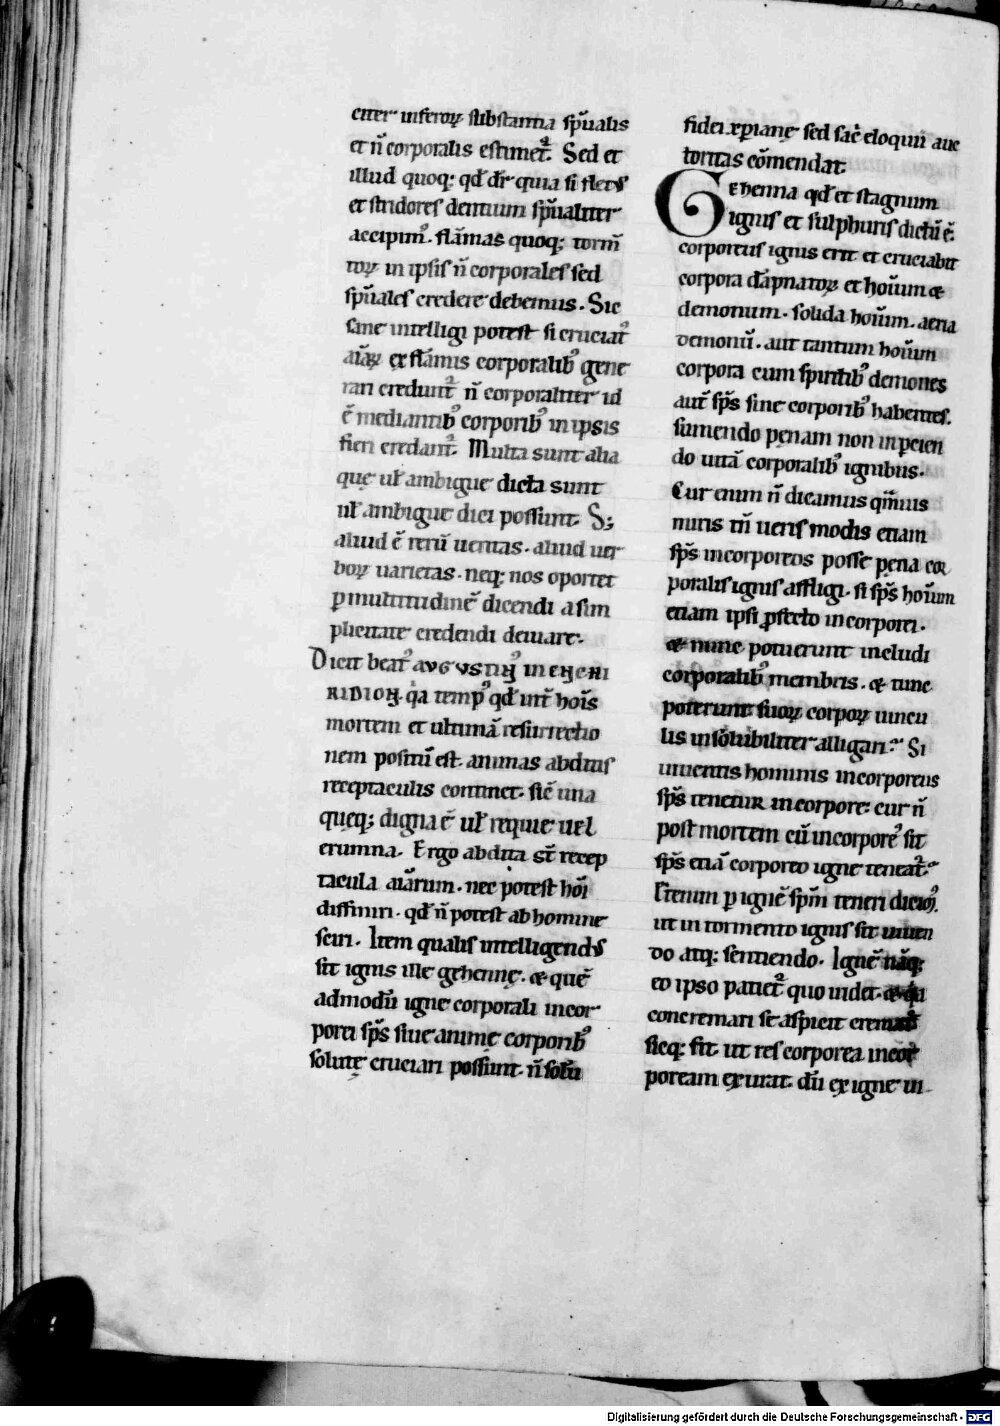 citer inferoꝝ substantia sp̄ualis
et n̄ corporalis estimet᷑. Sed et
illud quoq; qd̄ dr̄ quia si fletꝰ
et stridores dentium sp̄ualiter
accipim᷒. flāmas quoq; torm̄
toꝝ in ipsis n̄ corporales sed
sp̄uales credere debemus. Sic
sane intelligi potest si cruciat᷒
aīaꝝ ex flāmis corporalib᷒ gene
rari credunt᷑ n̄ corporaliter id
ē mediantib᷒ corporib᷒ in ipsis
fieri credant᷑. Multa sunt alia
quę uł ambigue dicta sunt
uł ambigue dici possunt. S;
aliud ē rerū ueritas. aliud uer
boꝝ uarietas. neq; nos oportet
ꝑ multitudinē dicendi a sim
plicitate credendi deuiare.
Dicit beat᷒ AVGVSTIN᷒ IN ENCHI
RIDION. qa temp᷒ qd̄ int̄ hoīs
mortem et ultimā resurrectio
nem positū est. animas abditis
receptaculis continet. sic̄ una
quęq; digna ē uł requie uel
erumna. Ergo abdita st̄ recep
tacula aīarum. nec potest hōi
diffiniri. qd̄ n̄ potest ab homine
sciri. Item qualis intelligendꝰ
sit ignis ille gehennę. & quē
admodū igne corporali incor
porei sp̄s siue animę corporib᷒
solutę cruciari possunt. n̄ solū
fidei xp̄ianę sed sac̄ eloquii auc
toritas cōmendat.
Gehenna qd̄ et stagnum
ignis et sulphuris dictū ē.
corporeus ignis erit et cruciabit
corpora dāpnatoꝝ et hoīum &
demonum. solida hoīum. aeria
demonū. aut tantum hoīum
corpora cum spiritib᷒ demones
aut̄ sp̄s sine corporib᷒ habentes.
sumendo pęnam non inperciен
do uitā corporalib᷒ ignibus.
Cur enim n̄ dicamus qm̄uis
miris tn̄ ueris modis etiam
sp̄s incorporeos posse pęna cor
poralis ignis affligi. si sp̄s hoīum
etiam ipsi ꝓfecto incorporei.
& nunc potuerunt includi
corporalib᷒ membris. & tunc
poterunt suoꝝ corpoꝝ uincu
lis insolubiliter alligari? Si
uiuentis hominis incorporeus
sp̄s tenetur in corpore: cur n̄
post mortem cū incorpore᷒ sit
sp̄s etiā corporeo igne teneat᷑?
Teneri ꝑ ignē sp̄m teneri dicim᷒.
ut in tormento ignis sit uiden
do atq; sentiendo. Ignē nāq;
eo ipso patiet᷑ quo uidet. & qa
concremari se aspicit crematur
sicq; fit ut res corporea incor
poream exurat. dū ex igne in